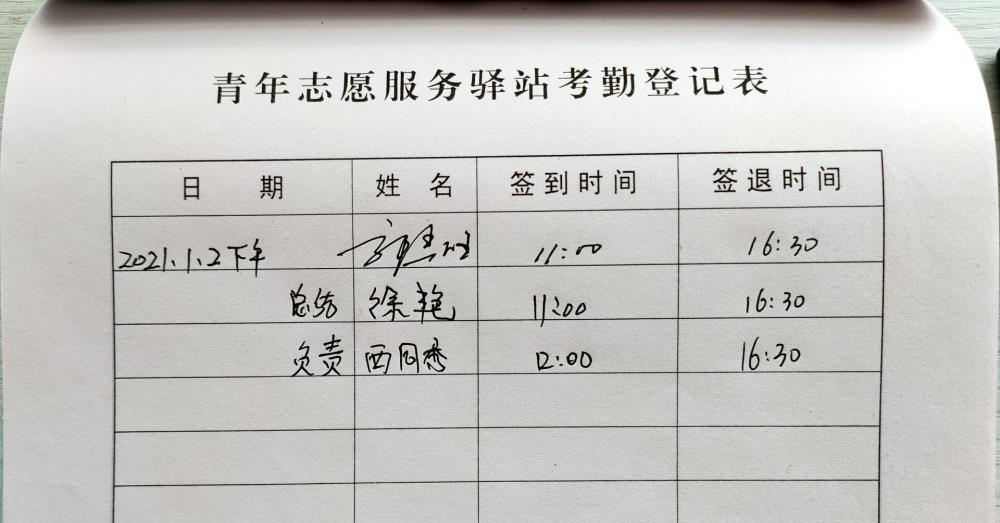 青年志愿服务驿站考勤登记表
日 期 姓 名 签到时间 签退时间
2021.1.2下午 11:00 16:30
总结 徐艳 11:00 16:30
负责 西同恋 12:00 16:30